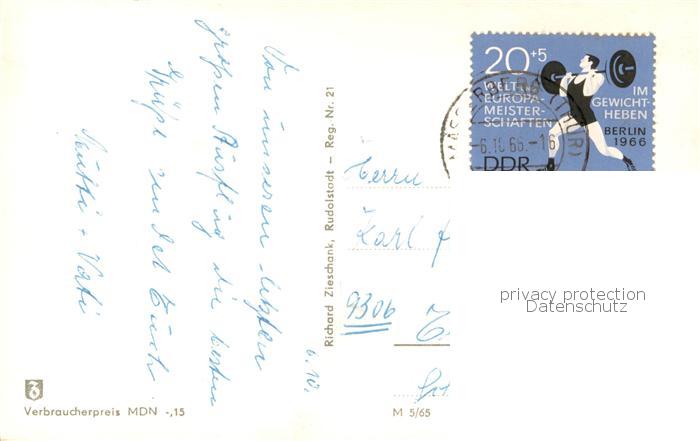 Von unseren letzten
großen Ausflug die besten
Grüße sendet Euch
Mutti + Vati
6.10.
Richard Zieschank, Rudolstadt – Reg. Nr. 21
20+5
WELT-
EUROPA-
MEISTER-
SCHAFTEN
IM
GEWICHT-
HEBEN
BERLIN
1966
DDR
-6.10.66.-16
(THÜR)
Herrn
Karl
9306
privacy protection
Datenschutz
Verbraucherpreis MDN -,15
M 5/65